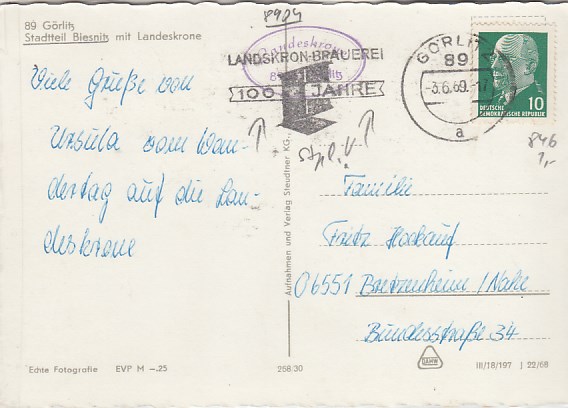 89 Görlitz
Stadtteil Biesnitz mit Landeskrone
8904
Landeskrone
LANDSKRON-BRAUEREI
100 JAHRE
GÖRLITZ
89
-3.6.69.-17
a
10
DEUTSCHE
DEMOKRATISCHE REPUBLIK
846
1,-
Viele Grüße von
Ursula vom Wan-
dertag auf die Lan-
deskrone
Familie
Fritz Hockauf
06551 Bretzenheim/Nahe
Bundesstraße 34
Aufnahmen und Verlag Steudtner KG.
Echte Fotografie EVP M -.25
258.30
III/18/197 J 22/68